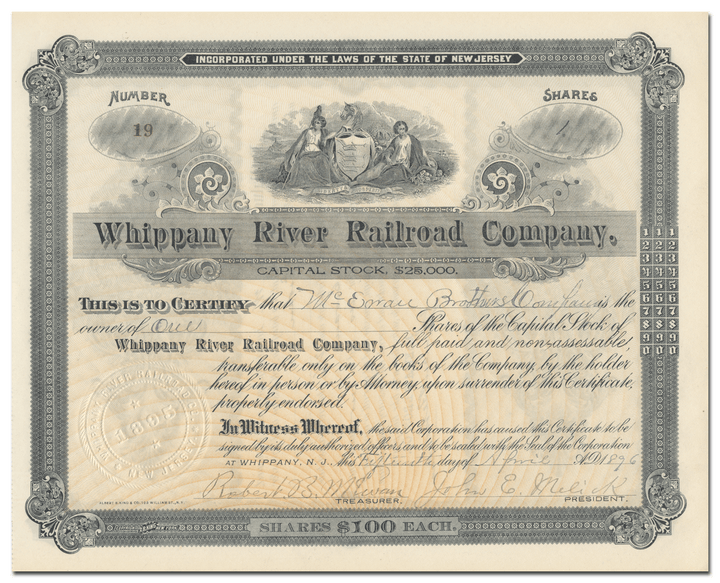 INCORPORATED UNDER THE LAWS OF THE STATE OF NEW JERSEY
NUMBER
SHARES
19
1
Whippany River Railroad Company.
CAPITAL STOCK, $25,000.
THIS IS TO CERTIFY that McEwan Brothers Company is the
owner of One Shares of the Capital Stock of
Whippany River Railroad Company, full paid and non-assessable
transferable only on the books of the Company by the holder
hereof in person or by Attorney, upon surrender of this Certificate,
properly endorsed.
In Witness Whereof, the said Corporation has caused this Certificate to be
signed by its duly authorized officers, and to be sealed with the Seal of the Corporation
AT WHIPPANY, N. J., this Fifteenth day of April A.D. 1896
Robert B. McEwan John E. Melick
TREASURER. PRESIDENT.
SHARES $100 EACH.
1 1 1
2 2 2
3 3 3
4 4 4
5 5 5
6 6 6
7 7 7
8 8 8
9 9 9
0 0
WHIPPANY RIVER RAILROAD CO.
1895
NEW JERSEY